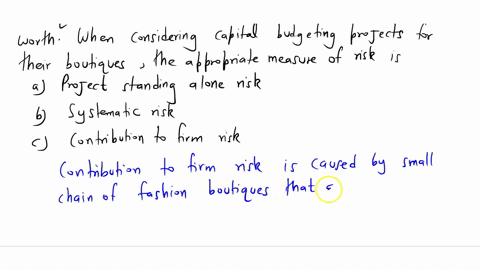 worth. When considering capital budgeting projects for
their boutiques, the appropriate measure of risk is
a) Project standing alone risk
b) Systematic risk
c) Contribution to firm risk
Contribution to firm risk is caused by small
chain of fashion boutiques that